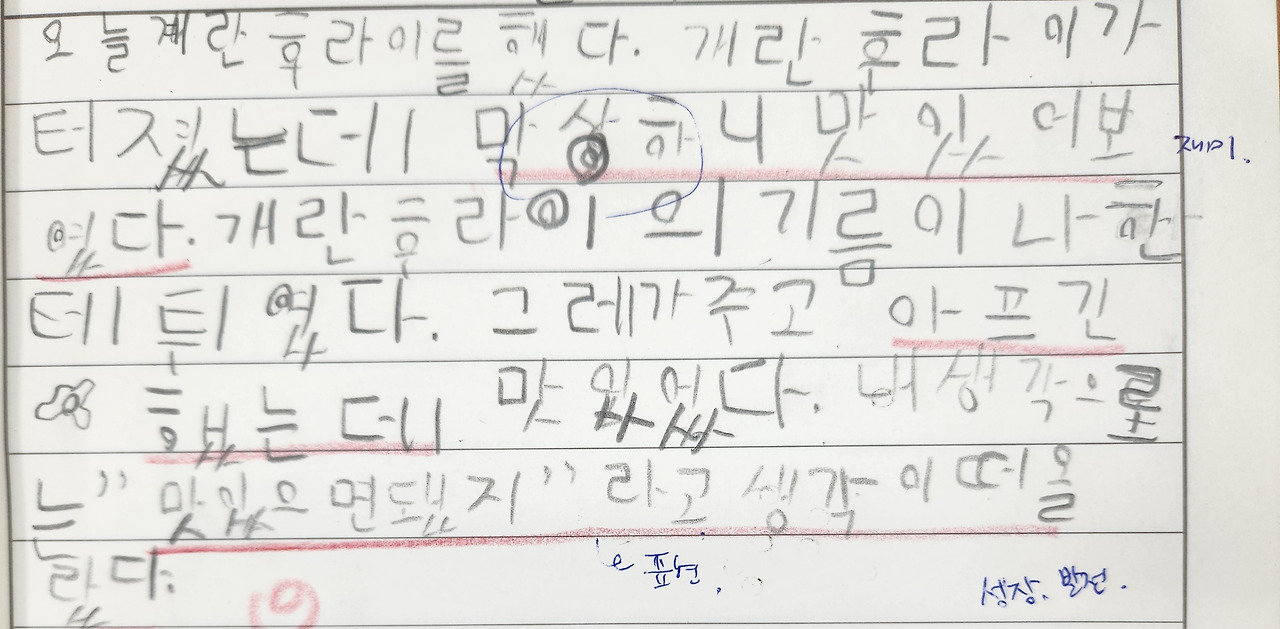 오늘 계란 후라이를 했다. 개란 훈라이가
터졌는데 막상하니 맛있어보
였다. 개란 후라이의 기름이 나한
테 튀였다. 그레가주고 아프긴
했는데 맛있었다. 내생각으로
는" 맛있으면됐지" 라고 생각이 떠올
랐다.
재미.
표현.
성장. 발전.